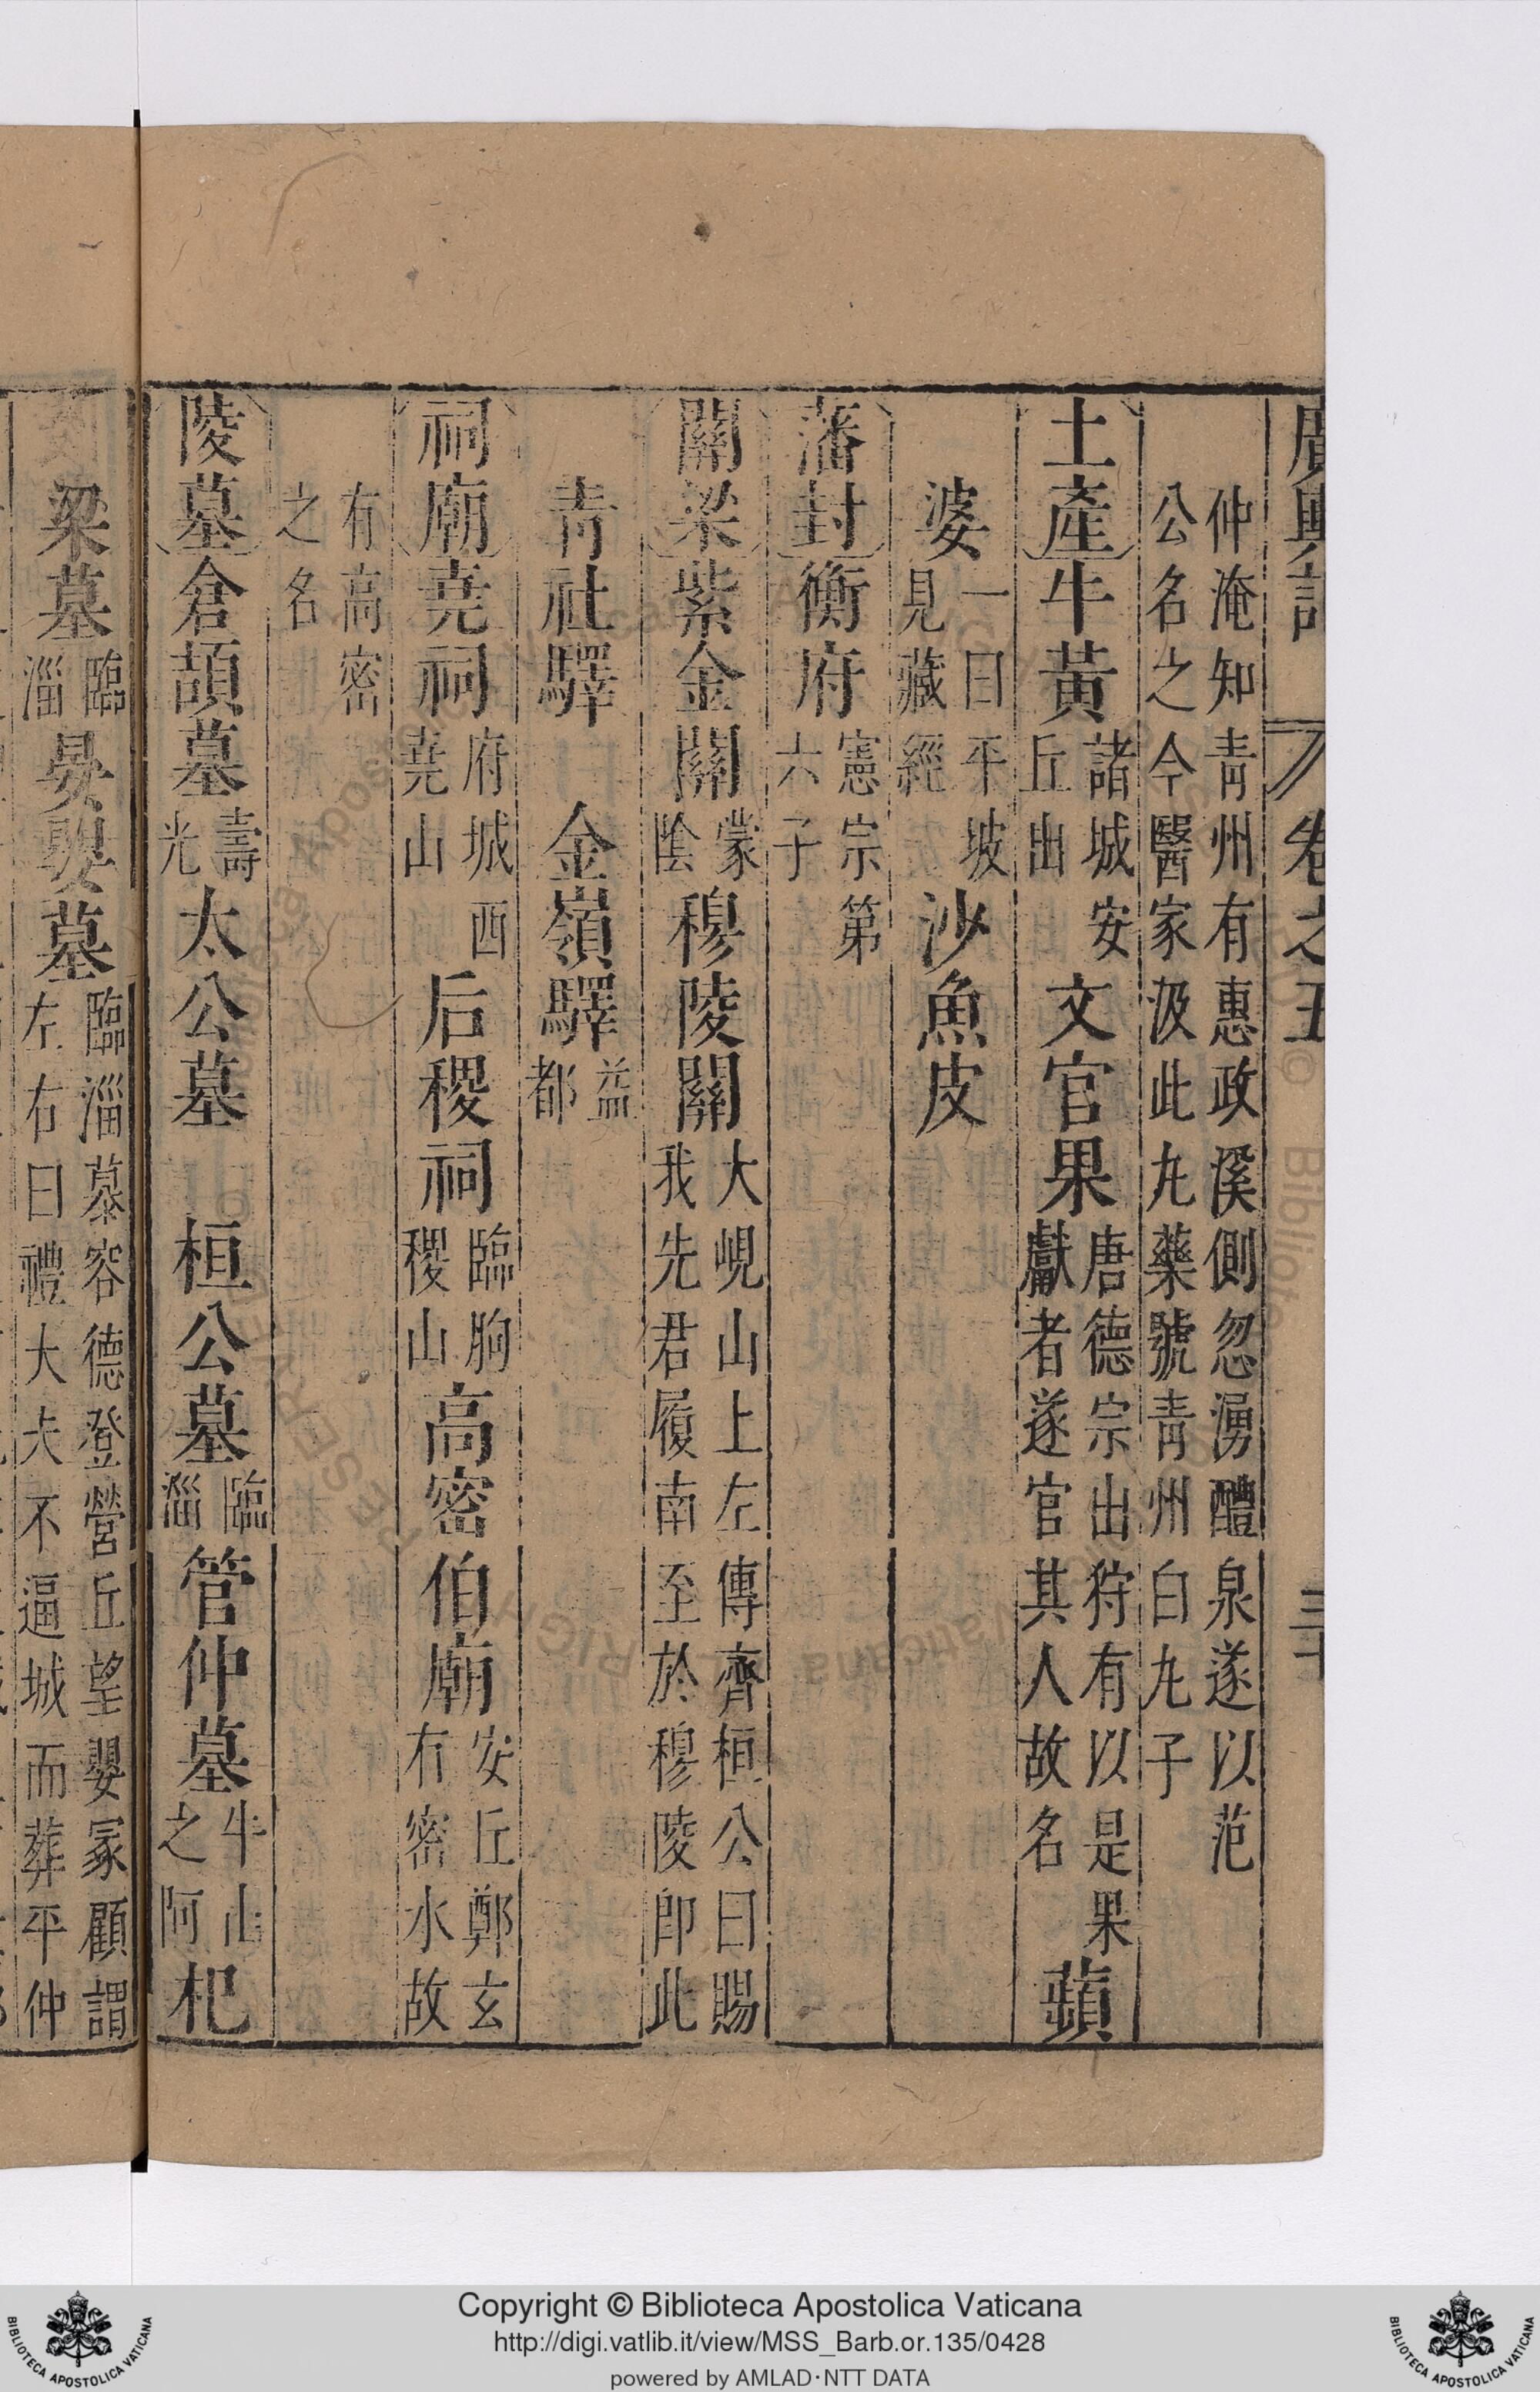 廣輿記 卷之五 三十
仲淹知青州有惠政溪側忽湧醴泉遂以范
公名之今醫家汲此丸藥號青州白丸子
土產 牛黃 諸城安丘出 文官果 唐德宗出狩有以是果獻者遂官其人故名 蘋
婆 一曰平坡見藏經 沙魚皮
藩封 衡府 憲宗第六子
關梁 紫金關 蒙陰 穆陵關 大峴山上左傳齊桓公曰賜我先君履南至於穆陵即此
青社驛 金嶺驛 益都
祠廟 堯祠 府城西堯山 后稷祠 臨朐稷山 高密伯廟 安丘鄭玄有密水故
有高密之名
陵墓 倉頡墓 壽光 太公墓 桓公墓 臨淄 管仲墓 牛山之阿 杞
梁墓 臨淄 晏嬰墓 臨淄慕容德登營丘望嬰冢顧謂左右曰禮大夫不逼城而葬平仲
Copyright © Biblioteca Apostolica Vaticana
http://digi.vatlib.it/view/MSS_Barb.or.135/0428
powered by AMLAD·NTT DATA
BIBLIOTECA APOSTOLICA VATICANA
BIBLIOTECA APOSTOLICA VATICANA